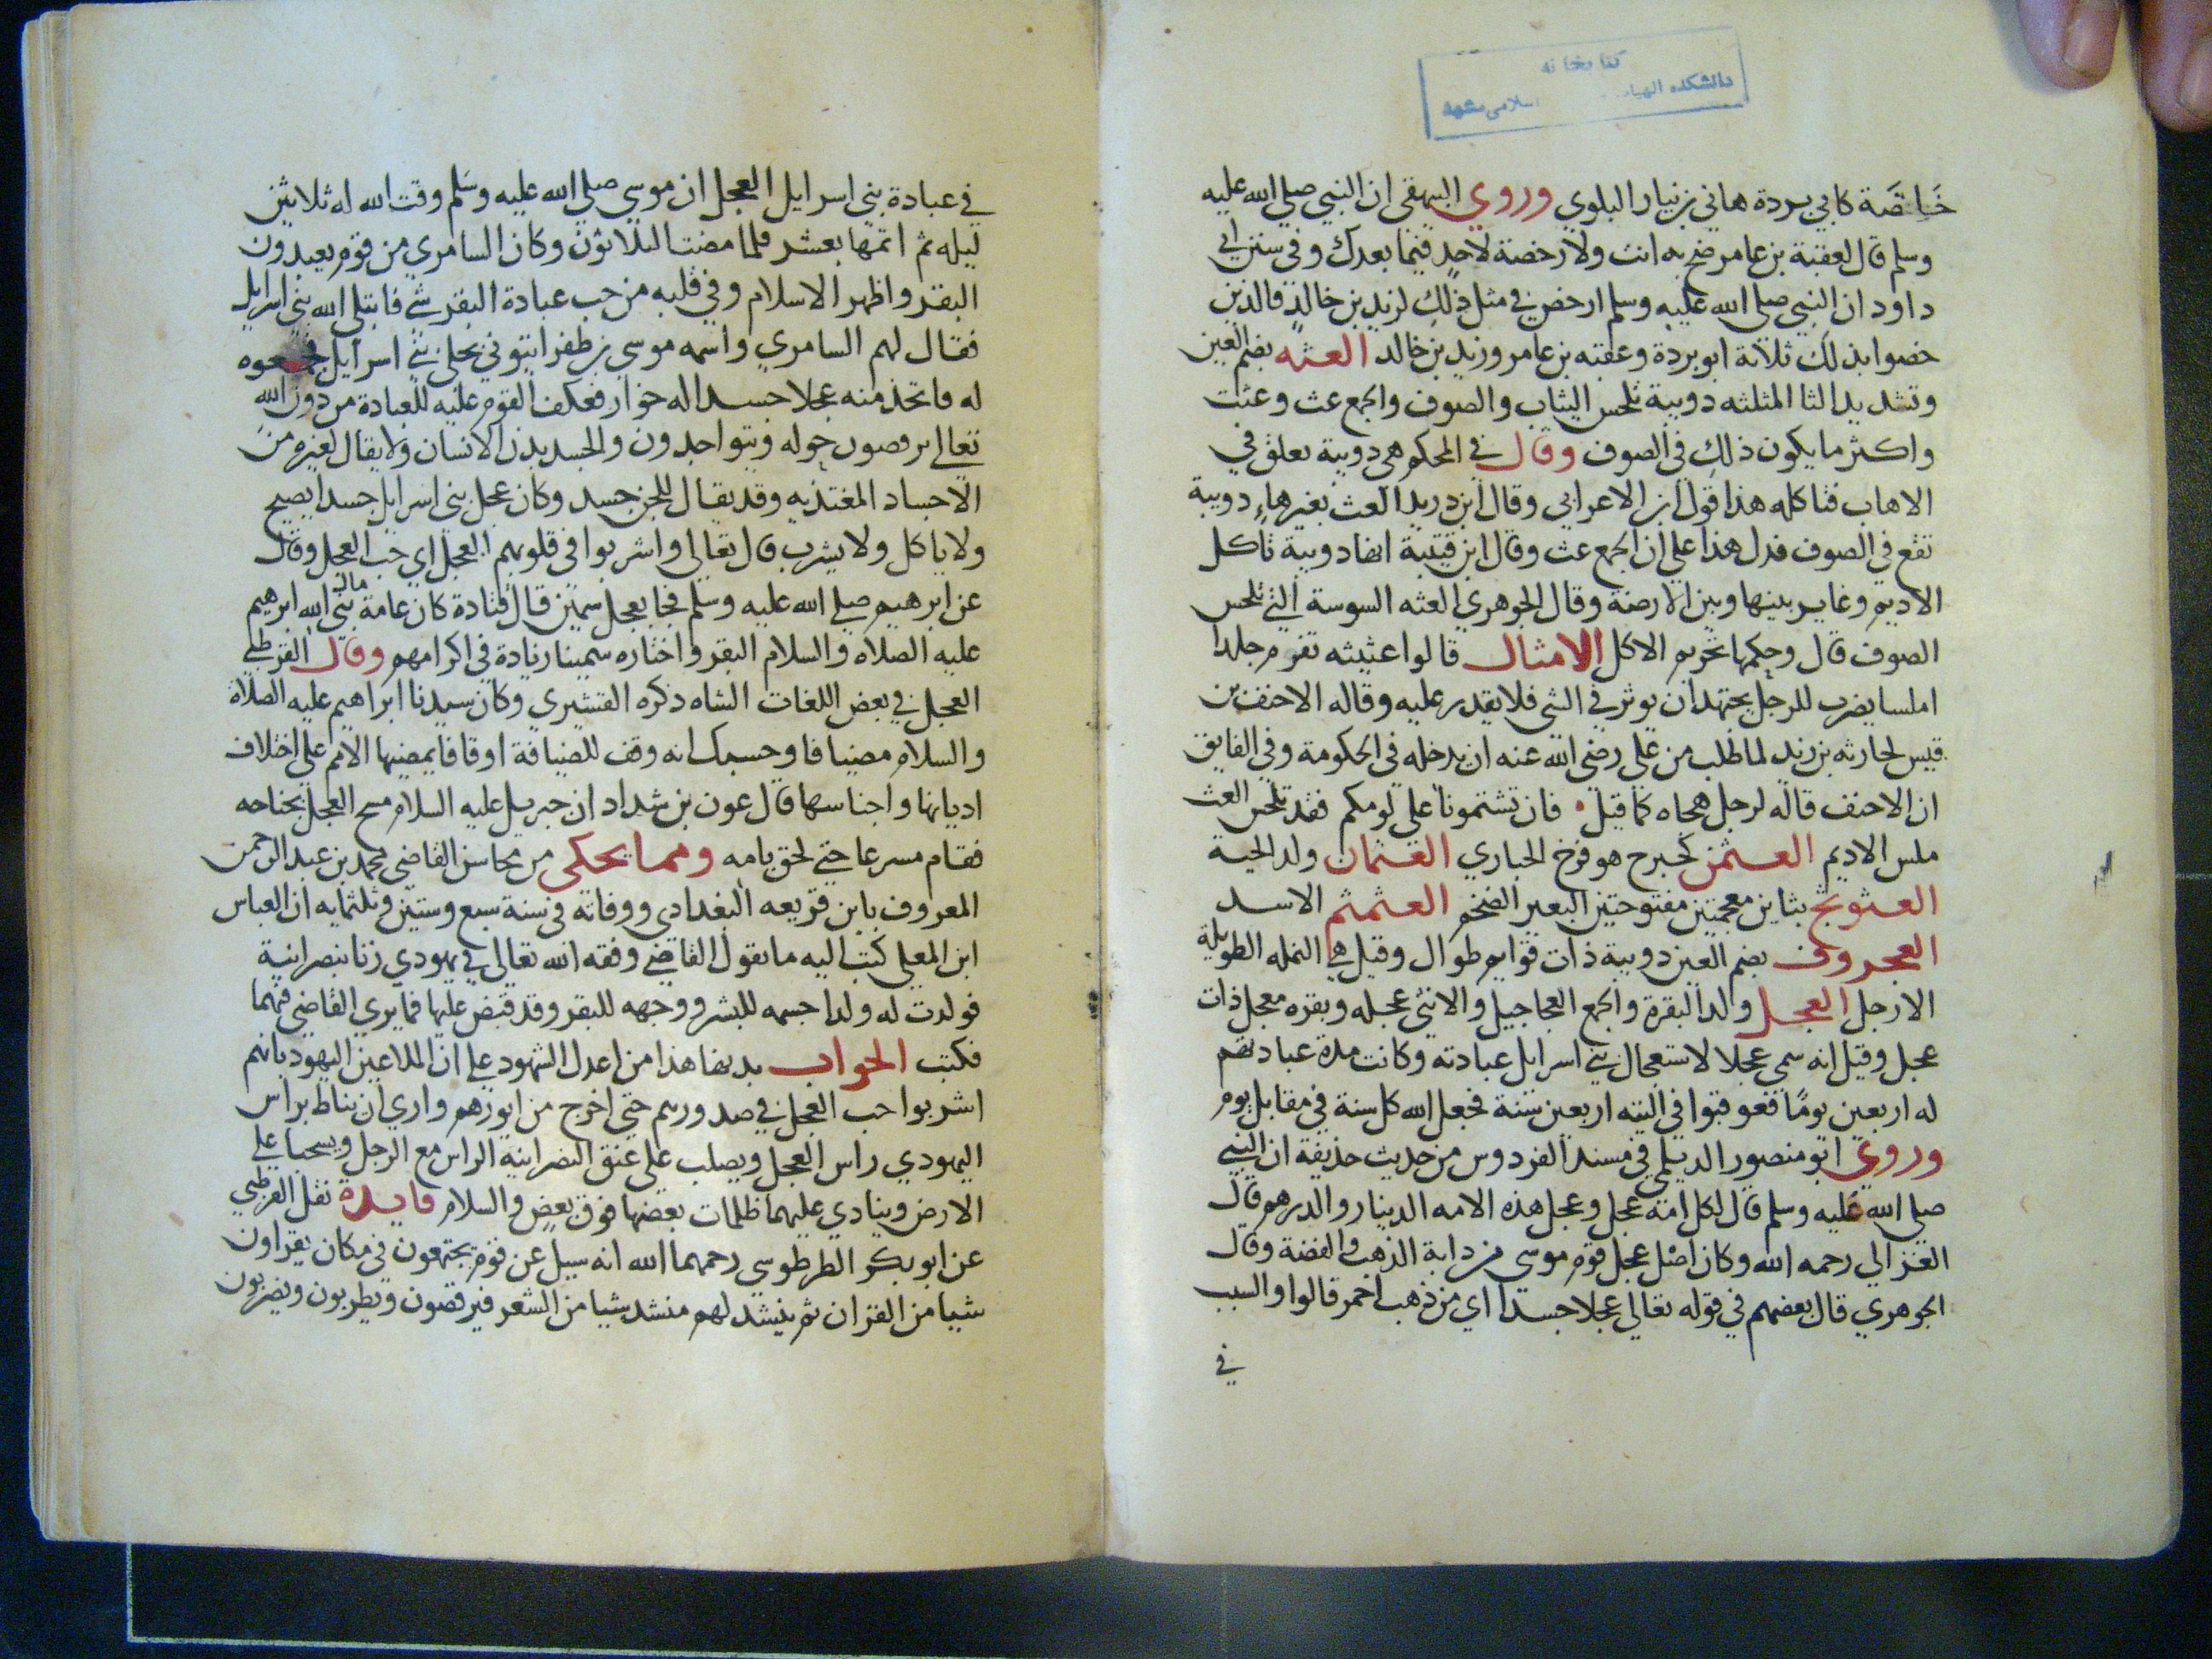 كتابخانه
دانشكده الهيات اسلامى مشهد
خَاصَّة كابي بردة هاني بن نيار البلوي وروي البيهقي ان النبي صلي الله عليه
وسلم قال لعقبة بن عامر ضح به انت ولا رخصة لاحد فيها بعدك وفي سنن ابي
داود ان النبي صلي الله عليه وسلم ارخص في مثل ذلك لزيد بن خالد فالذين
خصوا بذلك ثلاثة ابو بردة وعقبه بن عامر وزيد بن خالد العثه بضم العين
وتشديد الثا المثلثه دويبة تلحس الثياب والصوف والجمع عث وعثث
واكثر ما يكون ذلك في الصوف وقال في المحكم هي دويبة تعلق في
الاهاب فتاكله هذا قول ابن الاعرابي وقال ابن دريد العث بغير هاء دويبة
تقع في الصوف فدل هذا علي ان الجمع عث وقال ابن قتيبة انها دويبة تاكل
الاديم وغاير بينها وبين الارضة وقال الجوهري العثه السوسة التي تلحس
الصوف قال وحكمها تحريم الاكل الامثال قالوا عثيثه تقرم جلدا
املسا يضرب للرجل يجتهد ان يوثر في الشي فلا يقدر عليه وقاله الاحنف بن
قيس لحارثه بن زيد لما طلب من علي رضي الله عنه ان يدخله في الحكومة وفي الفايق
ان الاحنف قاله لرجل هجاه كما قيل فان تشتمونا علي لومكم فقد تلحس العث
ملس الاديم العثمن كجبرح هو فرخ الحباري العثمان ولد الحية
العثوثج بثاين معجمتين مفتوحتين البعير الضخم العثمثم الاسد
العجروف بضم العين دويبة ذات قوايم طوال وقيل هي النمله الطويلة
الارجل العجل ولد البقرة والجمع العجاجيل والانثي عجله وبقره معجل ذات
عجل وقيل انه سمي عجلا لاستعجال بني اسرايل عبادته وكانت مدة عبادتهم
له اربعين يومًا فعوقبوا في التيه اربعين سنة فجعل الله كل سنة في مقابل يوم
وروي ابو منصور الديلمي في مسند الفردوس من حديث حذيفة ان النبي
صلي الله عليه وسلم قال لكل امة عجل وعجل هذه الامه الدينار والدرهم قال
الغزالي رحمه الله وكان اصل عجل قوم موسي من دابة الذهب والفضة وقال
الجوهري قال بعضهم في قوله تعالي عجلا جسدا اي من ذهب احمر قالوا والسبب
في
في عبادة بني اسرايل العجل ان موسي صلي الله عليه وسلم وقت الله له ثلاثين
ليله ثم اتمها بعشر فلما مضت الثلاثون وكان السامري من قوم يعبدون
البقر واظهر الاسلام وفي قلبه من حب عبادة البقر شي فابتلي الله بني اسرايل
فقال لهم السامري واسمه موسي بن ظفر ايتوني بحلي بني اسرايل فجمعوه
له فاتخذ منه عجلا جسدا له خوار فعكف القوم عليه للعبادة من دون الله
تعالي يرقصون حوله ويتواجدون والجسد بدن الانسان ولا يقال لغيره من
الاجساد المغتذيه وقد يقال للجن جسد وكان عجل بني اسرايل جسدا يصيح
ولا ياكل ولا يشرب قال تعالي واشربوا في قلوبهم العجل اي حب العجل وقال
عن ابرهيم صلي الله عليه وسلم فجا بعجل سمين قال قتادة كان عامة مال نبي الله ابرهيم
عليه الصلاه والسلام البقر واختاره سمينا زيادة في اكرامهم وقال القرطبي
العجل في بعض اللغات الشاه ذكره القشيري وكان سيدنا ابراهيم عليه الصلاة
والسلام مضيافا وحسبك انه وقف للضيافة اوقافا يمضيها الامم علي اختلاف
اديانها واجناسها قال عون بن شداد ان جبريل عليه السلام مسح العجل بجناحه
فقام مسرعا حتي لحق بامه ومما يحكي من محاسن القاضي محمد بن عبد الرحمن
المعروف بابن قريعه البغدادي ووفاته في سنة سبع وستين وثلثمايه ان العباس
ابن المعلي كتب اليه ما يقول القاضي وفقه الله تعالي في يهودي زنا بنصرانية
فولدت له ولدا جسمه للبشر ووجهه للبقر وقد قبض عليها فما يري القاضي فيهما
فكتب الجواب بديها هذا من اعدل الشهود علي ان الملاعين اليهود بانهم
اشربوا حب العجل في صدورهم حتي اخرج من ايورهم واري ان يناط براس
اليهودي راس العجل ويصلب علي عنق النصرانية الراس مع الرجل ويسحبا علي
الارض وينادي عليهما ظلمات بعضها فوق بعض والسلام فايدة نقل القرطبي
عن ابو بكر الطرطوسي رحمهما الله انه سيل عن قوم يجتمعون في مكان يقراون
شيا من القران ثم ينشد لهم منشد شيا من الشعر فيرقصون ويطربون ويضربون